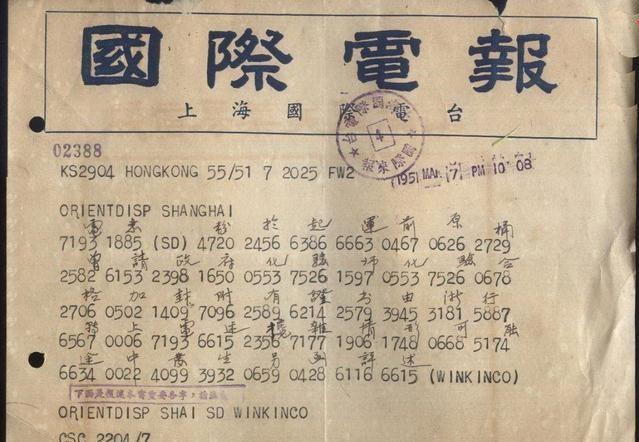 國際電報
上海國際電台
4
02388
KS2904 HONGKONG 55/51 7 2025 FW2
1951 MAR 7 PM 10 08
ORIENTDISP SHANGHAI
電 於 起 運 前 原 桶
7193 1885 (SD) 4720 2456 6386 6663 0467 0626 2729
曾 請 政 府 化 驗 師 化 驗 合
2582 6153 2398 1650 0553 7526 1597 0553 7526 0678
格 加 封 附 有 證 書 由 浙 行
2706 0502 1409 7096 2589 6214 2579 3945 3181 5887
務 上 電 述 攙 雜 情 形 可 融
6567 0006 7193 6615 2356 7177 1906 1748 0668 5174
途 中 發 生 另 函 詳 述
6634 0022 4099 3932 0659 0428 6116 6615 (WINKINCO)
ORIENTDISP SHAI SD WINKINCO
CSC 2204/7